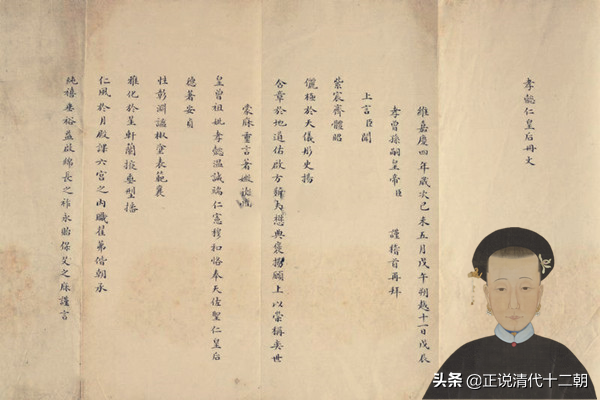 孝懿仁皇后冊文
維嘉慶四年歲次己未五月戊午朔越十一日戊辰
孝曾孫嗣皇帝臣 謹稽首再拜
上言臣聞
紫宸齊體昭
儷極於天儀彤史揚
含章於地道佑啟方綿夫懋典褒揚願上以崇稱奕世
蒙庥靈言著徽
皇曾祖妣孝懿溫誠端仁憲穆和恪奉天佐聖仁皇后
德著安貞
性彰淵謐椒塗表範襄
雅化於星軒蘭掖垂型播
仁風於月殿課六宮之內職偕朝承
純禧垂裕益啟綿長之祚永貽保乂之庥謹言
头条 @正说清代十二朝